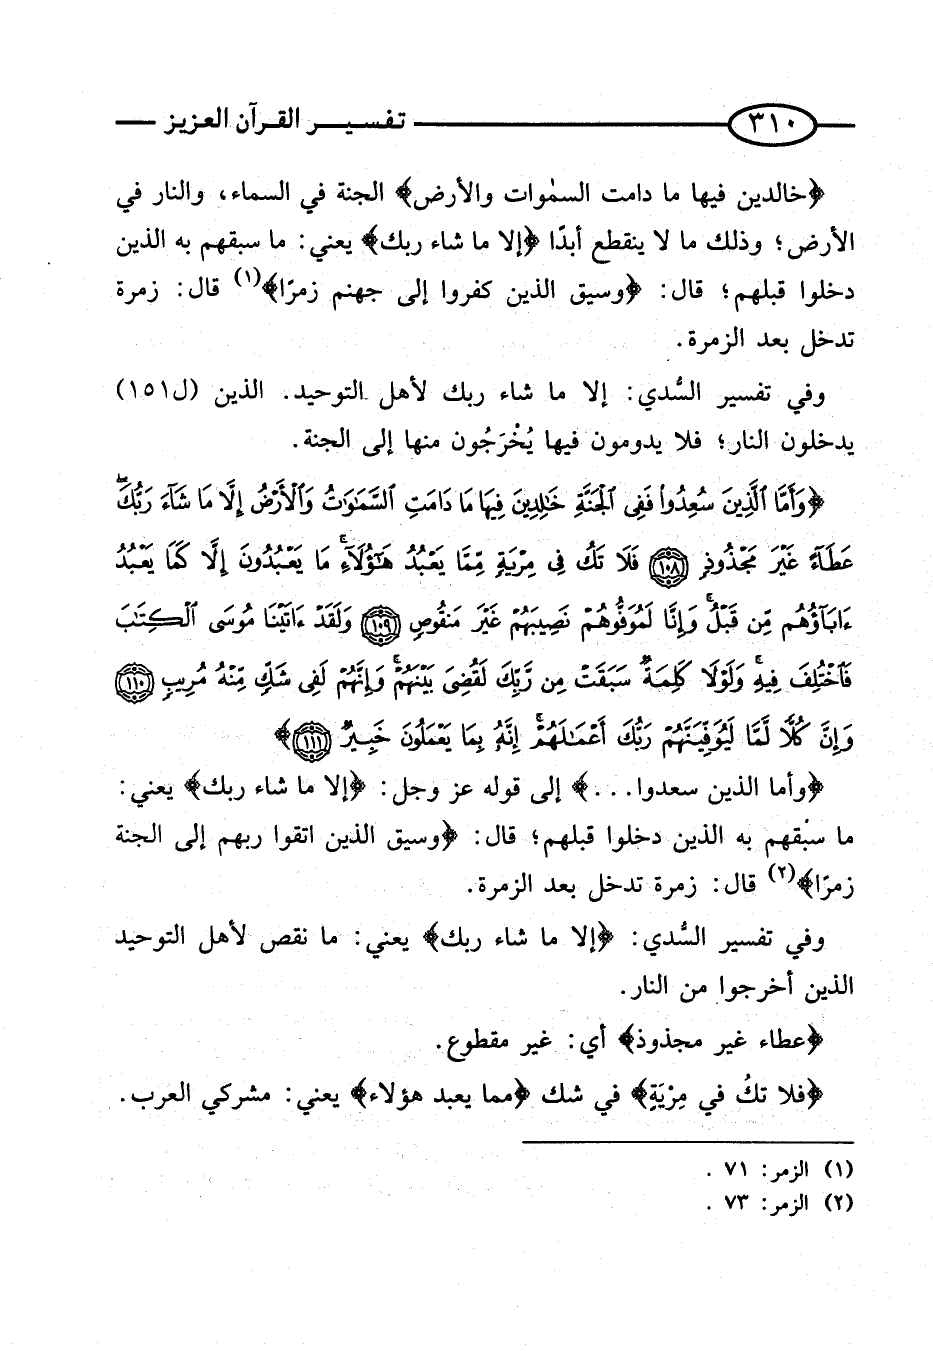 ٣١٠ تفسير القرآن العزيز
﴿خالدين فيها ما دامت السمٰوات والأرض﴾ الجنة في السماء، والنار في
الأرض؛ وذلك ما لا ينقطع أبدًا ﴿إلا ما شاء ربك﴾ يعني: ما سبقهم به الذين
دخلوا قبلهم؛ قال: ﴿وسيق الذين كفروا إلى جهنم زمرًا﴾(١) قال: زمرة
تدخل بعد الزمرة.
وفي تفسير السُّدي: إلا ما شاء ربك لأهل التوحيد. الذين (ل١٥١)
يدخلون النار؛ فلا يدومون فيها يُخْرَجُون منها إلى الجنة.
﴿وَأَمَّا ٱلَّذِينَ سُعِدُواْ فَفِى ٱلْجَنَّةِ خَٰلِدِينَ فِيهَا مَا دَامَتِ ٱلسَّمَٰوَٰتُ وَٱلْأَرْضُ إِلَّا مَا شَآءَ رَبُّكَۖ
عَطَآءً غَيْرَ مَجْذُوذٍ ١٠٨ فَلَا تَكُ فِى مِرْيَةٍ مِّمَّا يَعْبُدُ هَٰٓؤُلَآءِۚ مَا يَعْبُدُونَ إِلَّا كَمَا يَعْبُدُ
ءَابَآؤُهُم مِّن قَبْلُۚ وَإِنَّا لَمُوَفُّوهُمْ نَصِيبَهُمْ غَيْرَ مَنقُوصٍ ١٠٩ وَلَقَدْ ءَاتَيْنَا مُوسَى ٱلْكِتَٰبَ
فَٱخْتُلِفَ فِيهِۚ وَلَوْلَا كَلِمَةٌ سَبَقَتْ مِن رَّبِّكَ لَقُضِىَ بَيْنَهُمْۚ وَإِنَّهُمْ لَفِى شَكٍّ مِّنْهُ مُرِيبٍ ١١٠
وَإِنَّ كُلًّا لَّمَّا لَيُوَفِّيَنَّهُمْ رَبُّكَ أَعْمَٰلَهُمْۚ إِنَّهُۥ بِمَا يَعْمَلُونَ خَبِيرٌ ١١١﴾
﴿وأما الذين سعدوا...﴾ إلى قوله عز وجل: ﴿إلا ما شاء ربك﴾ يعني:
ما سبْقهم به الذين دخلوا قبلهم؛ قال: ﴿وسيق الذين اتقوا ربهم إلى الجنة
زمرًا﴾(٢) قال: زمرة تدخل بعد الزمرة.
وفي تفسير السُّدي: ﴿إلا ما شاء ربك﴾ يعني: ما نقص لأهل التوحيد
الذين أخرجوا من النار.
﴿عطاء غير مجذوذ﴾ أي: غير مقطوع.
﴿فلا تكُ في مِرْيَةٍ﴾ في شك ﴿مما يعبد هؤلاء﴾ يعني: مشركي العرب.
(١) الزمر: ٧١ .
(٢) الزمر: ٧٣ .